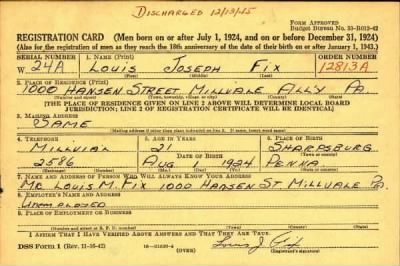 DISCHARGED 12/13/45
FORM APPROVED
Budget Bureau No. 33-R012-43
REGISTRATION CARD (Men born on or after July 1, 1924, and on or before December 31, 1924)
(Also for the registration of men as they reach the 18th anniversary of the date of their birth on or after January 1, 1943.)
SERIAL NUMBER 1. NAME (Print) ORDER NUMBER
W 24A LOUIS JOSEPH FIX 12813A
(First) (Middle) (Last)
2. PLACE OF RESIDENCE (Print)
1000 HANSEN STREET MILLVALE ALLY PA.
(Number and street) (State)
[THE PLACE OF RESIDENCE GIVEN ON LINE 2 ABOVE WILL DETERMINE LOCAL BOARD
JURISDICTION; LINE 2 OF REGISTRATION CERTIFICATE WILL BE IDENTICAL]
3. MAILING ADDRESS
SAME
4. TELEPHONE 5. AGE IN YEARS 6. PLACE OF BIRTH
21 SHARPSBURG
DATE OF BIRTH (Town or county)
2586 AUG 1 1924 PENNA
(Exchange) (Number) (Mo.) (Day) (Yr.) (State or country)
7. NAME AND ADDRESS OF PERSON WHO WILL ALWAYS KNOW YOUR ADDRESS
MR. LOUIS M. FIX 1000 HANSEN ST. MILLVALE PA.
8. EMPLOYER'S NAME AND ADDRESS
9. PLACE OF EMPLOYMENT OR BUSINESS
I AFFIRM THAT I HAVE VERIFIED ABOVE ANSWERS AND THAT THEY ARE TRUE.
DSS Form 1 (Rev. 11-16-42) (OVER) Louis J. Fix
(Registrant's signature)